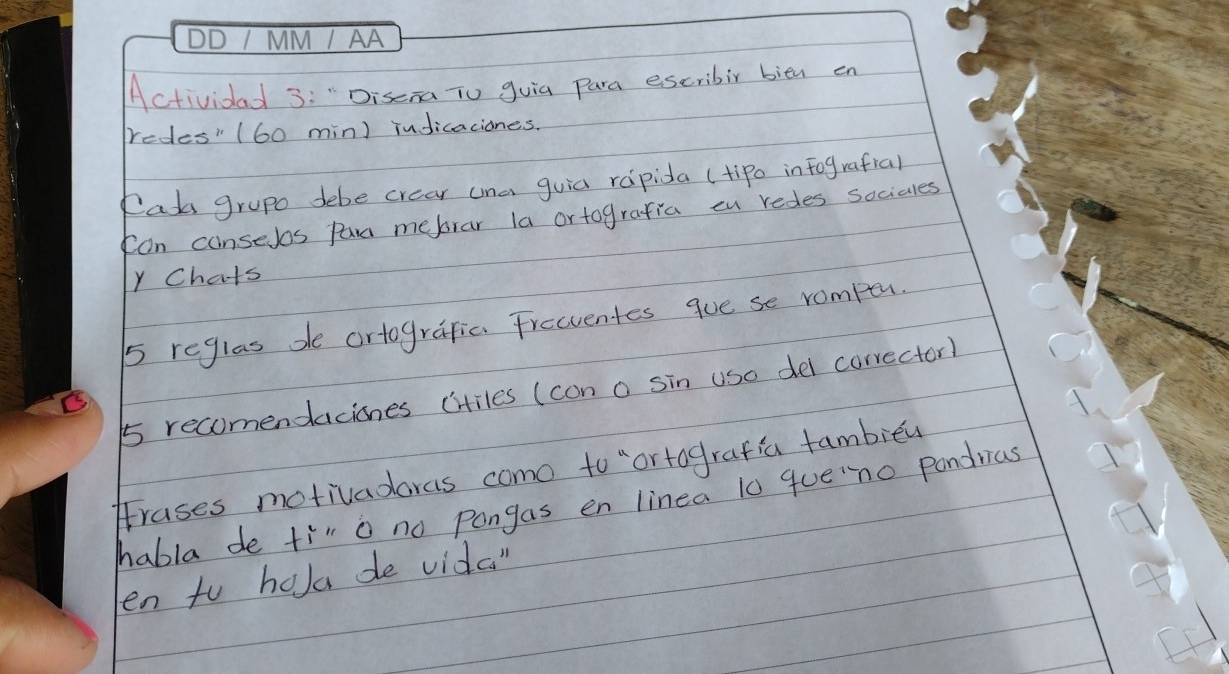 DD / MM / AA
Actividad 3: "Diseña Tu guia Para escribir bien en
redes" (60 min) indicaciones.
Cada grupo debe crear una guia rápida (tipo infografia)
con consejos Para mejorar la ortografia en redes Sociales
y Chats
5 reglas de ortográfia frecuentes que se rompen.
5 recomendaciones útiles (con o sin uso del corrector)
Frases motivadoras como tu "ortografía también
habla de ti" ó no pongas en linea lo que "no pondrias
en tu hoja de vida"